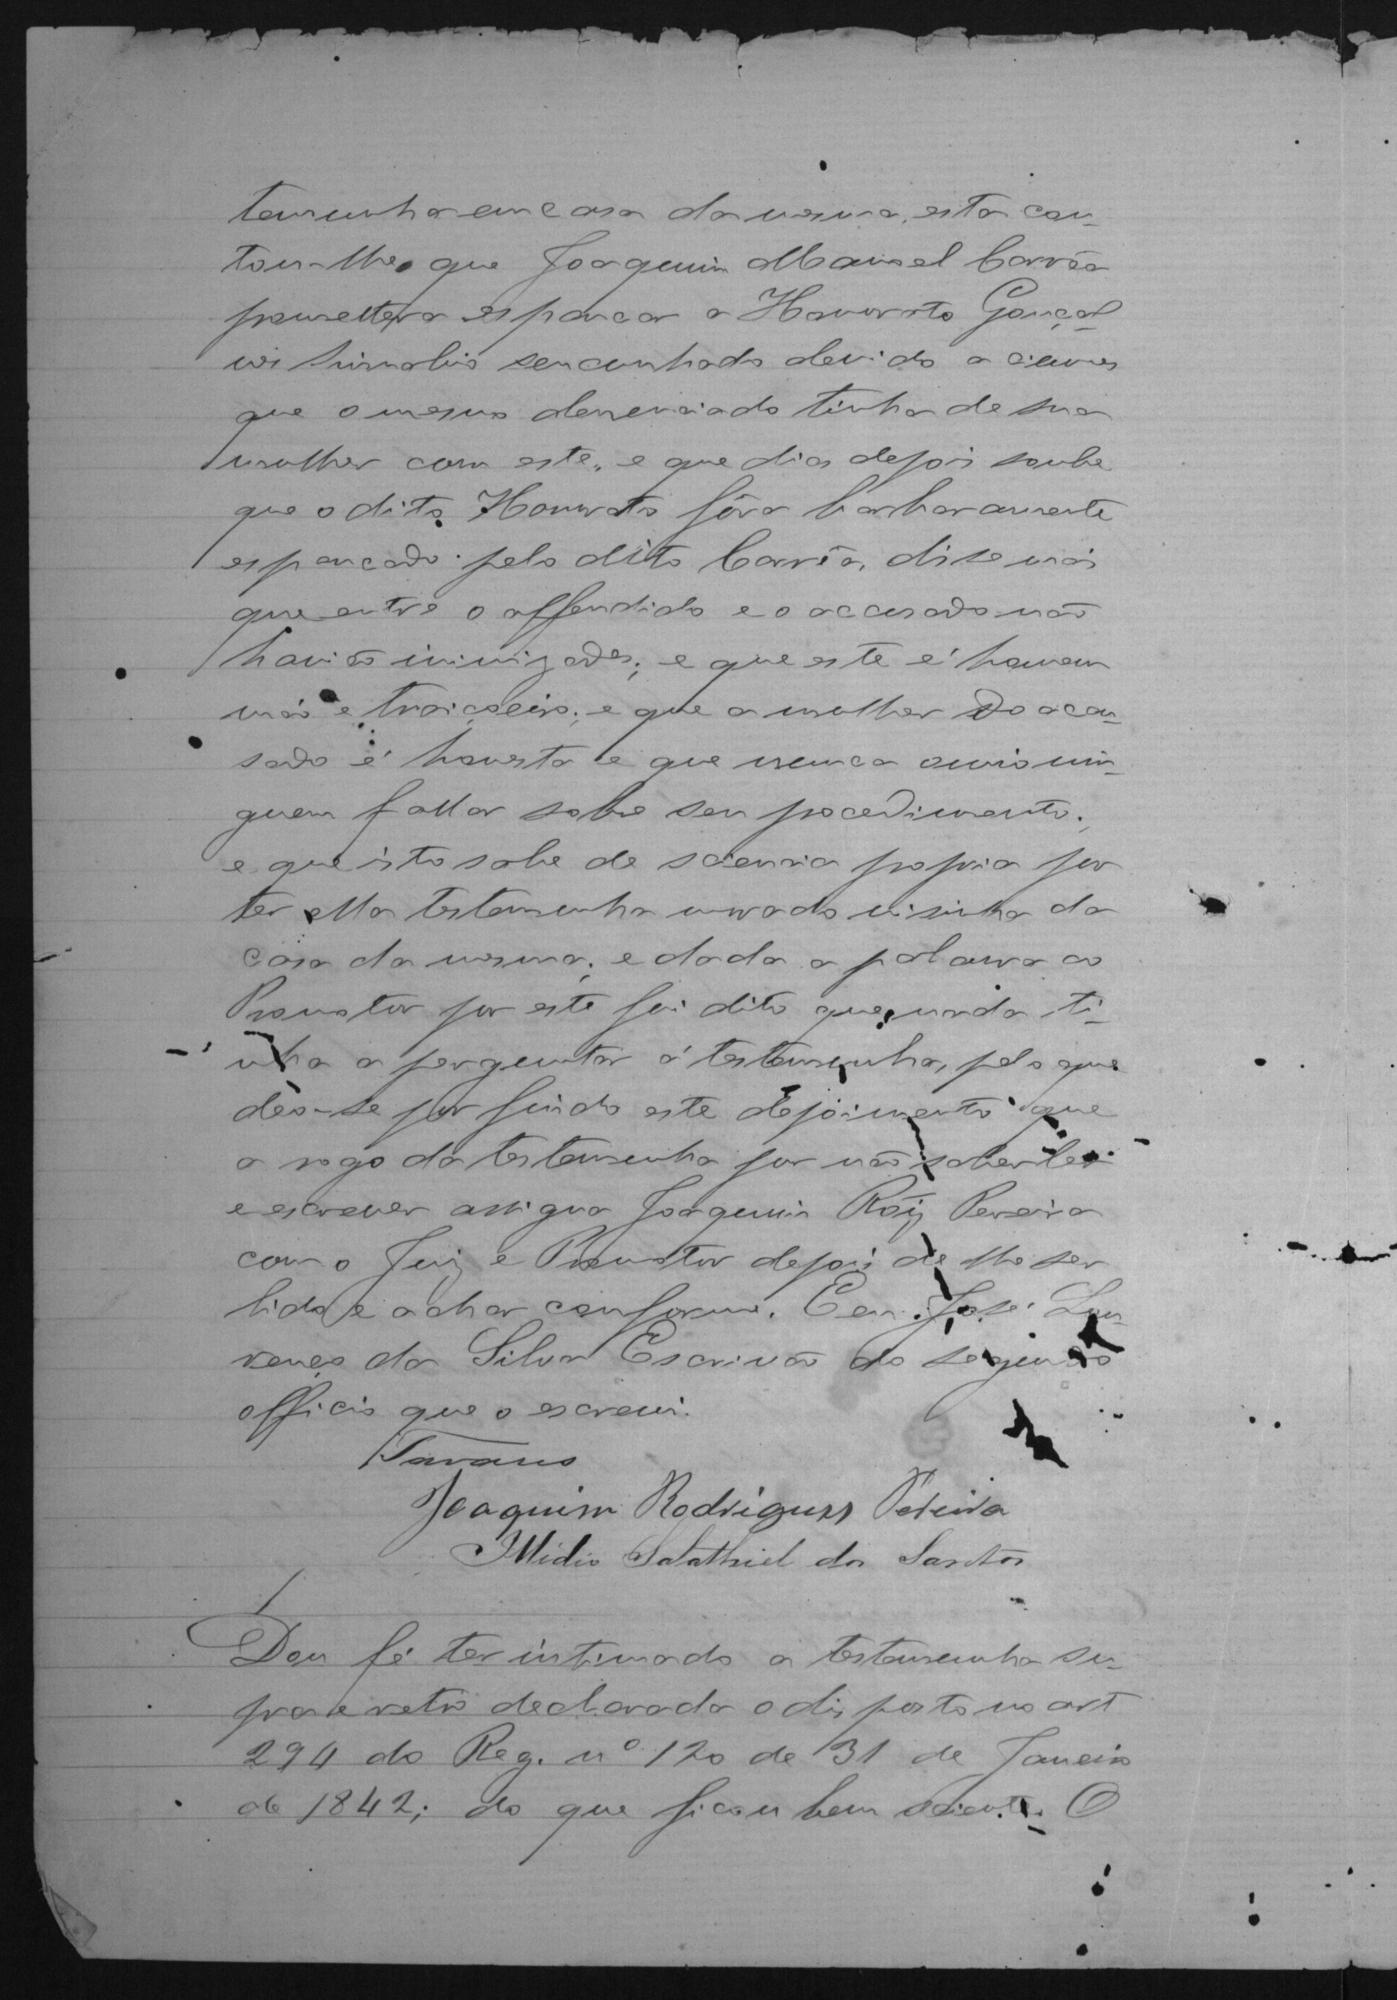 temunha em casa da mesma, esta con-
tou-lhe que Joaquim Manoel Corrêa
promettera espancar a Honorato Gonçal-
ves seu cunhado devido a ciumes
que o mesmo denunciado tinha de sua
mulher com este, e que dias depois soube
que o dito Honorato fôra barbaramente
espancado pelo dito Corrêa, disse mais
que entre o offendido e o accusado não
havião inimizades; e que este é homem
máo e traiçoeiro; e que a mulher do accu-
sado é honesta e que nunca ouvio nin-
guem fallar sobre seu procedimento;
e que isto sabe de sciencia propria por
ter ella testemunha morado visinha da
casa da mesma; e dada a palavra ao
Promotor por este foi dito que nada ti-
nha a perguntar á testemunha, pelo que
deo-se por findo este depoimento que
a rogo da testemunha por não saber ler
e escrever assigna Joaquim Roiz Pereira
com o Juiz e Promotor depois de lhe ser
lido e achar conforme. Eu José Lou-
renço da Silva Escrivão do segundo
officio que o escrevi.
Tavares
Joaquim Rodrigues Pereira
Illidio Salathiel dos Santos
Dou fé ter intimado a testemunha su-
pra e retro declarada o disposto no art
294 do Reg. nº 120 de 31 de Janeiro
de 1842; do que ficou bem sciente. O